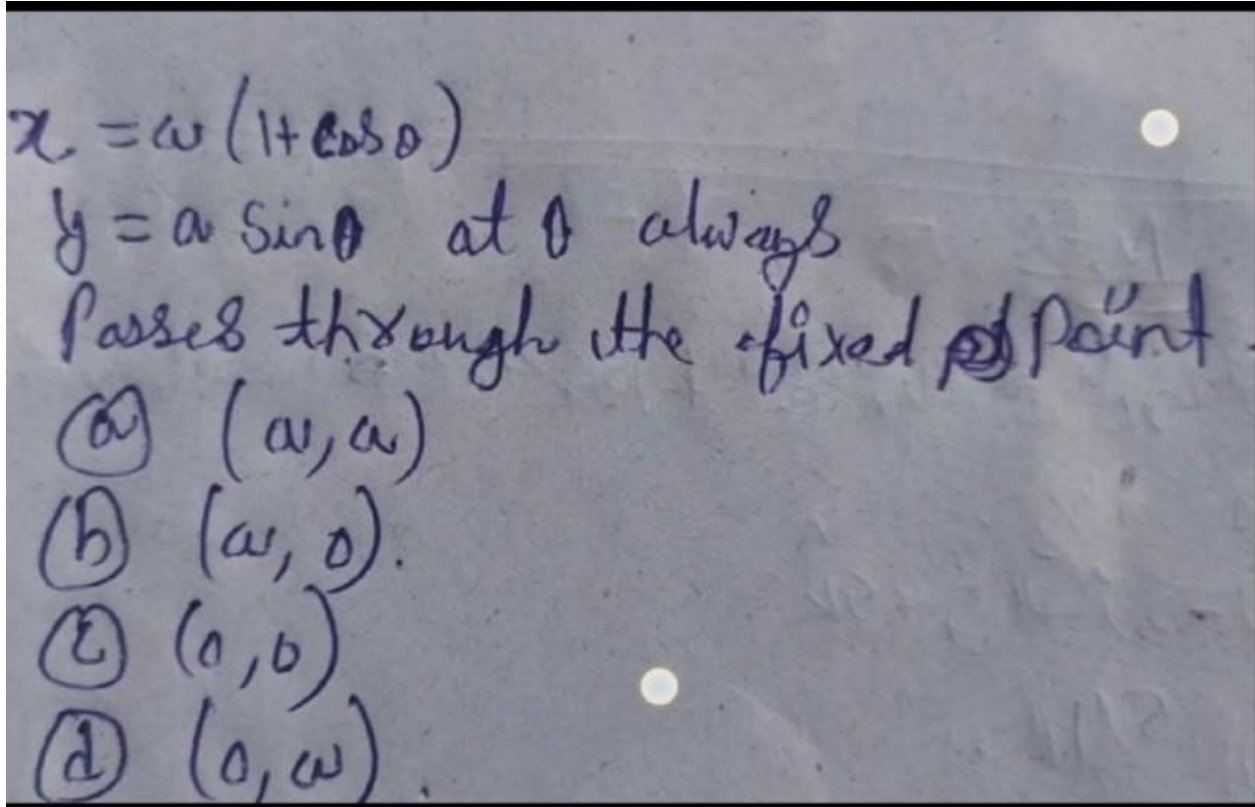 x = a (1+ cos θ)
y = a sin θ at θ always
Passes through the fixed Point.
(a) (a, a)
(b) (a, 0).
(c) (0, 0)
(d) (0, a).